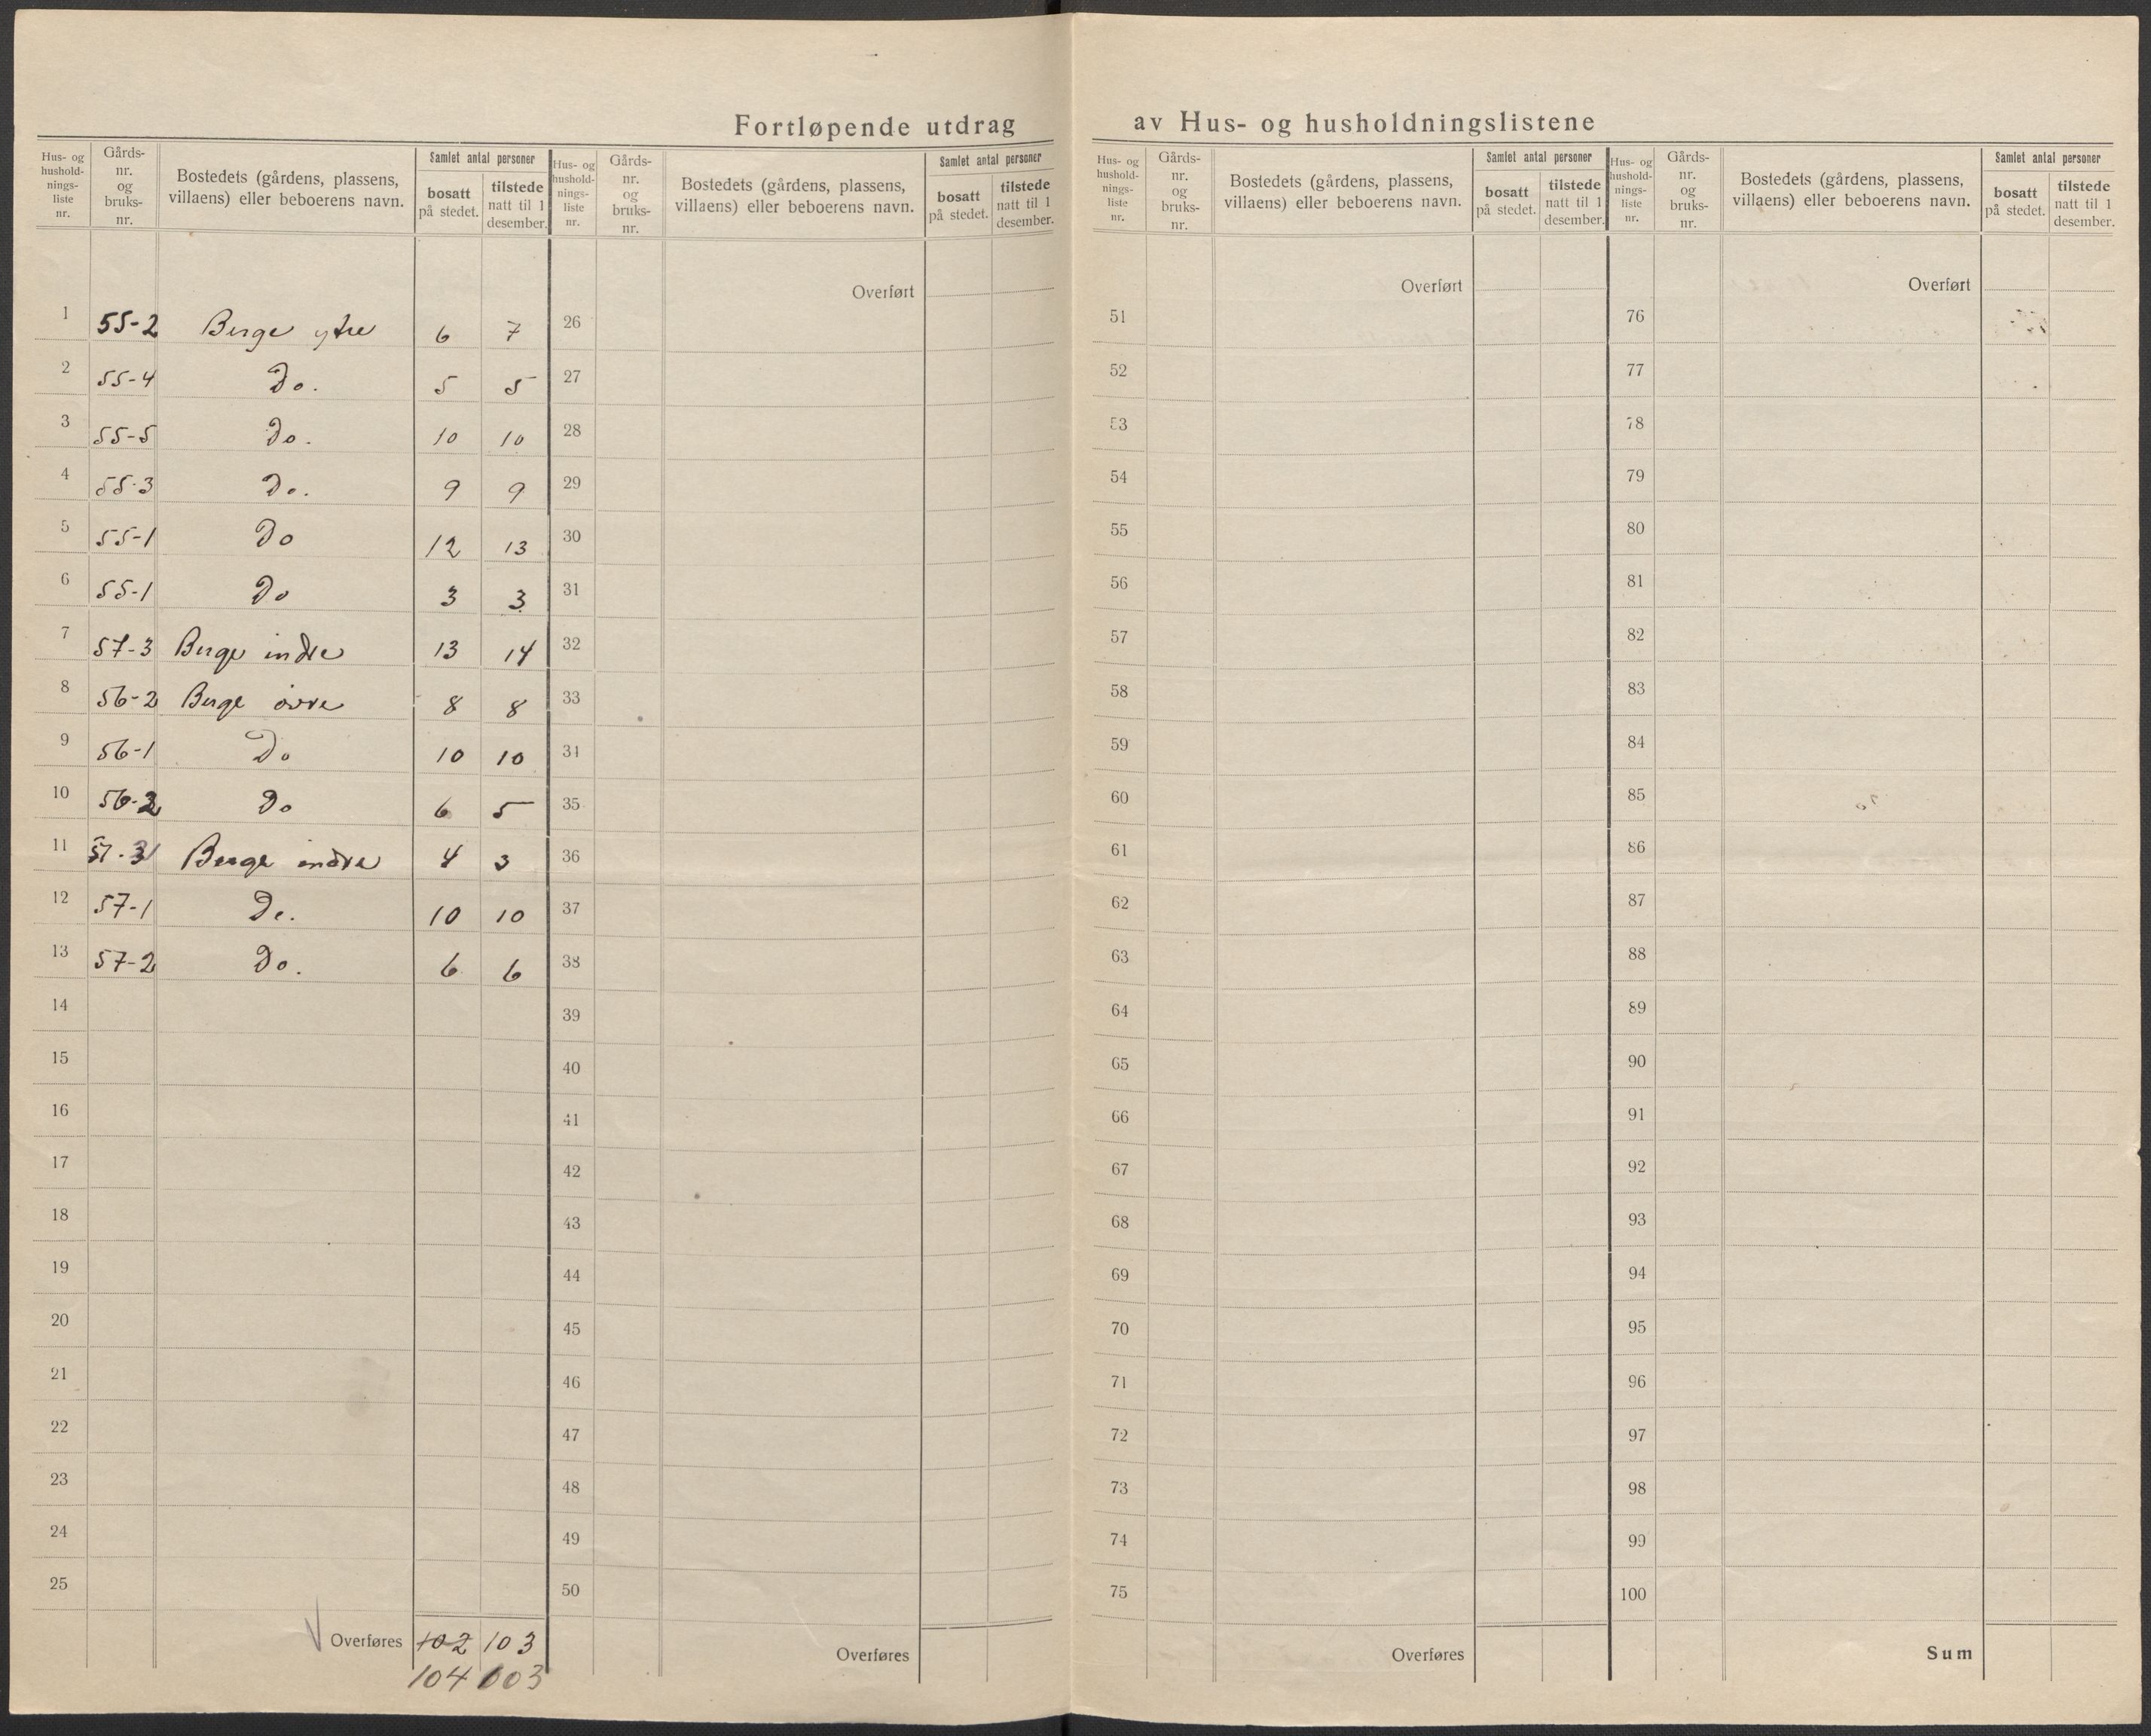 Fortløpende utdrag av Hus- og husholdningslistene
Hus- og hushold-nings-liste nr. | Gårds-nr. og bruks-nr. | Bostedets (gårdens, plassens, villaens) eller beboerens navn. | Samlet antal personer | bosatt på stedet. | tilstede natt til 1 desember.
Hus- og hushold-nings-liste nr. | Gårds-nr. og bruks-nr. | Bostedets (gårdens, plassens, villaens) eller beboerens navn. | Samlet antal personer | bosatt på stedet. | tilstede natt til 1 desember.
Hus- og hushold-nings-liste nr. | Gårds-nr. og bruks-nr. | Bostedets (gårdens, plassens, villaens) eller beboerens navn. | Samlet antal personer | bosatt på stedet. | tilstede natt til 1 desember.
Hus- og hushold-nings-liste nr. | Gårds-nr. og bruks-nr. | Bostedets (gårdens, plassens, villaens) eller beboerens navn. | Samlet antal personer | bosatt på stedet. | tilstede natt til 1 desember.
1 55-2 Berge ytre 6 7
2 55-4 Do. 5 5
3 55-5 Do. 10 10
4 55-3 Do. 9 9
5 55-1 Do 12 13
6 55-1 Do 3 3
7 57-3 Berge indre 13 14
8 56-2 Berge övre 8 8
9 56-1 Do 10 10
10 56-2 Do 6 5
11 57-3 Berge indre 4 3
12 57-1 Do. 10 10
13 57-2 Do. 6 6
14
15
16
17
18
19
20
21
22
23
24
25
Overføres 102 103
104 103
Overført
26
27
28
29
30
31
32
33
34
35
36
37
38
39
40
41
42
43
44
45
46
47
48
49
50
Overføres
Overført
51
52
53
54
55
56
57
58
59
60
61
62
63
64
65
66
67
68
69
70
71
72
73
74
75
Overføres
Overført
76
77
78
79
80
81
82
83
84
85
86
87
88
89
90
91
92
93
94
95
96
97
98
99
100
Sum